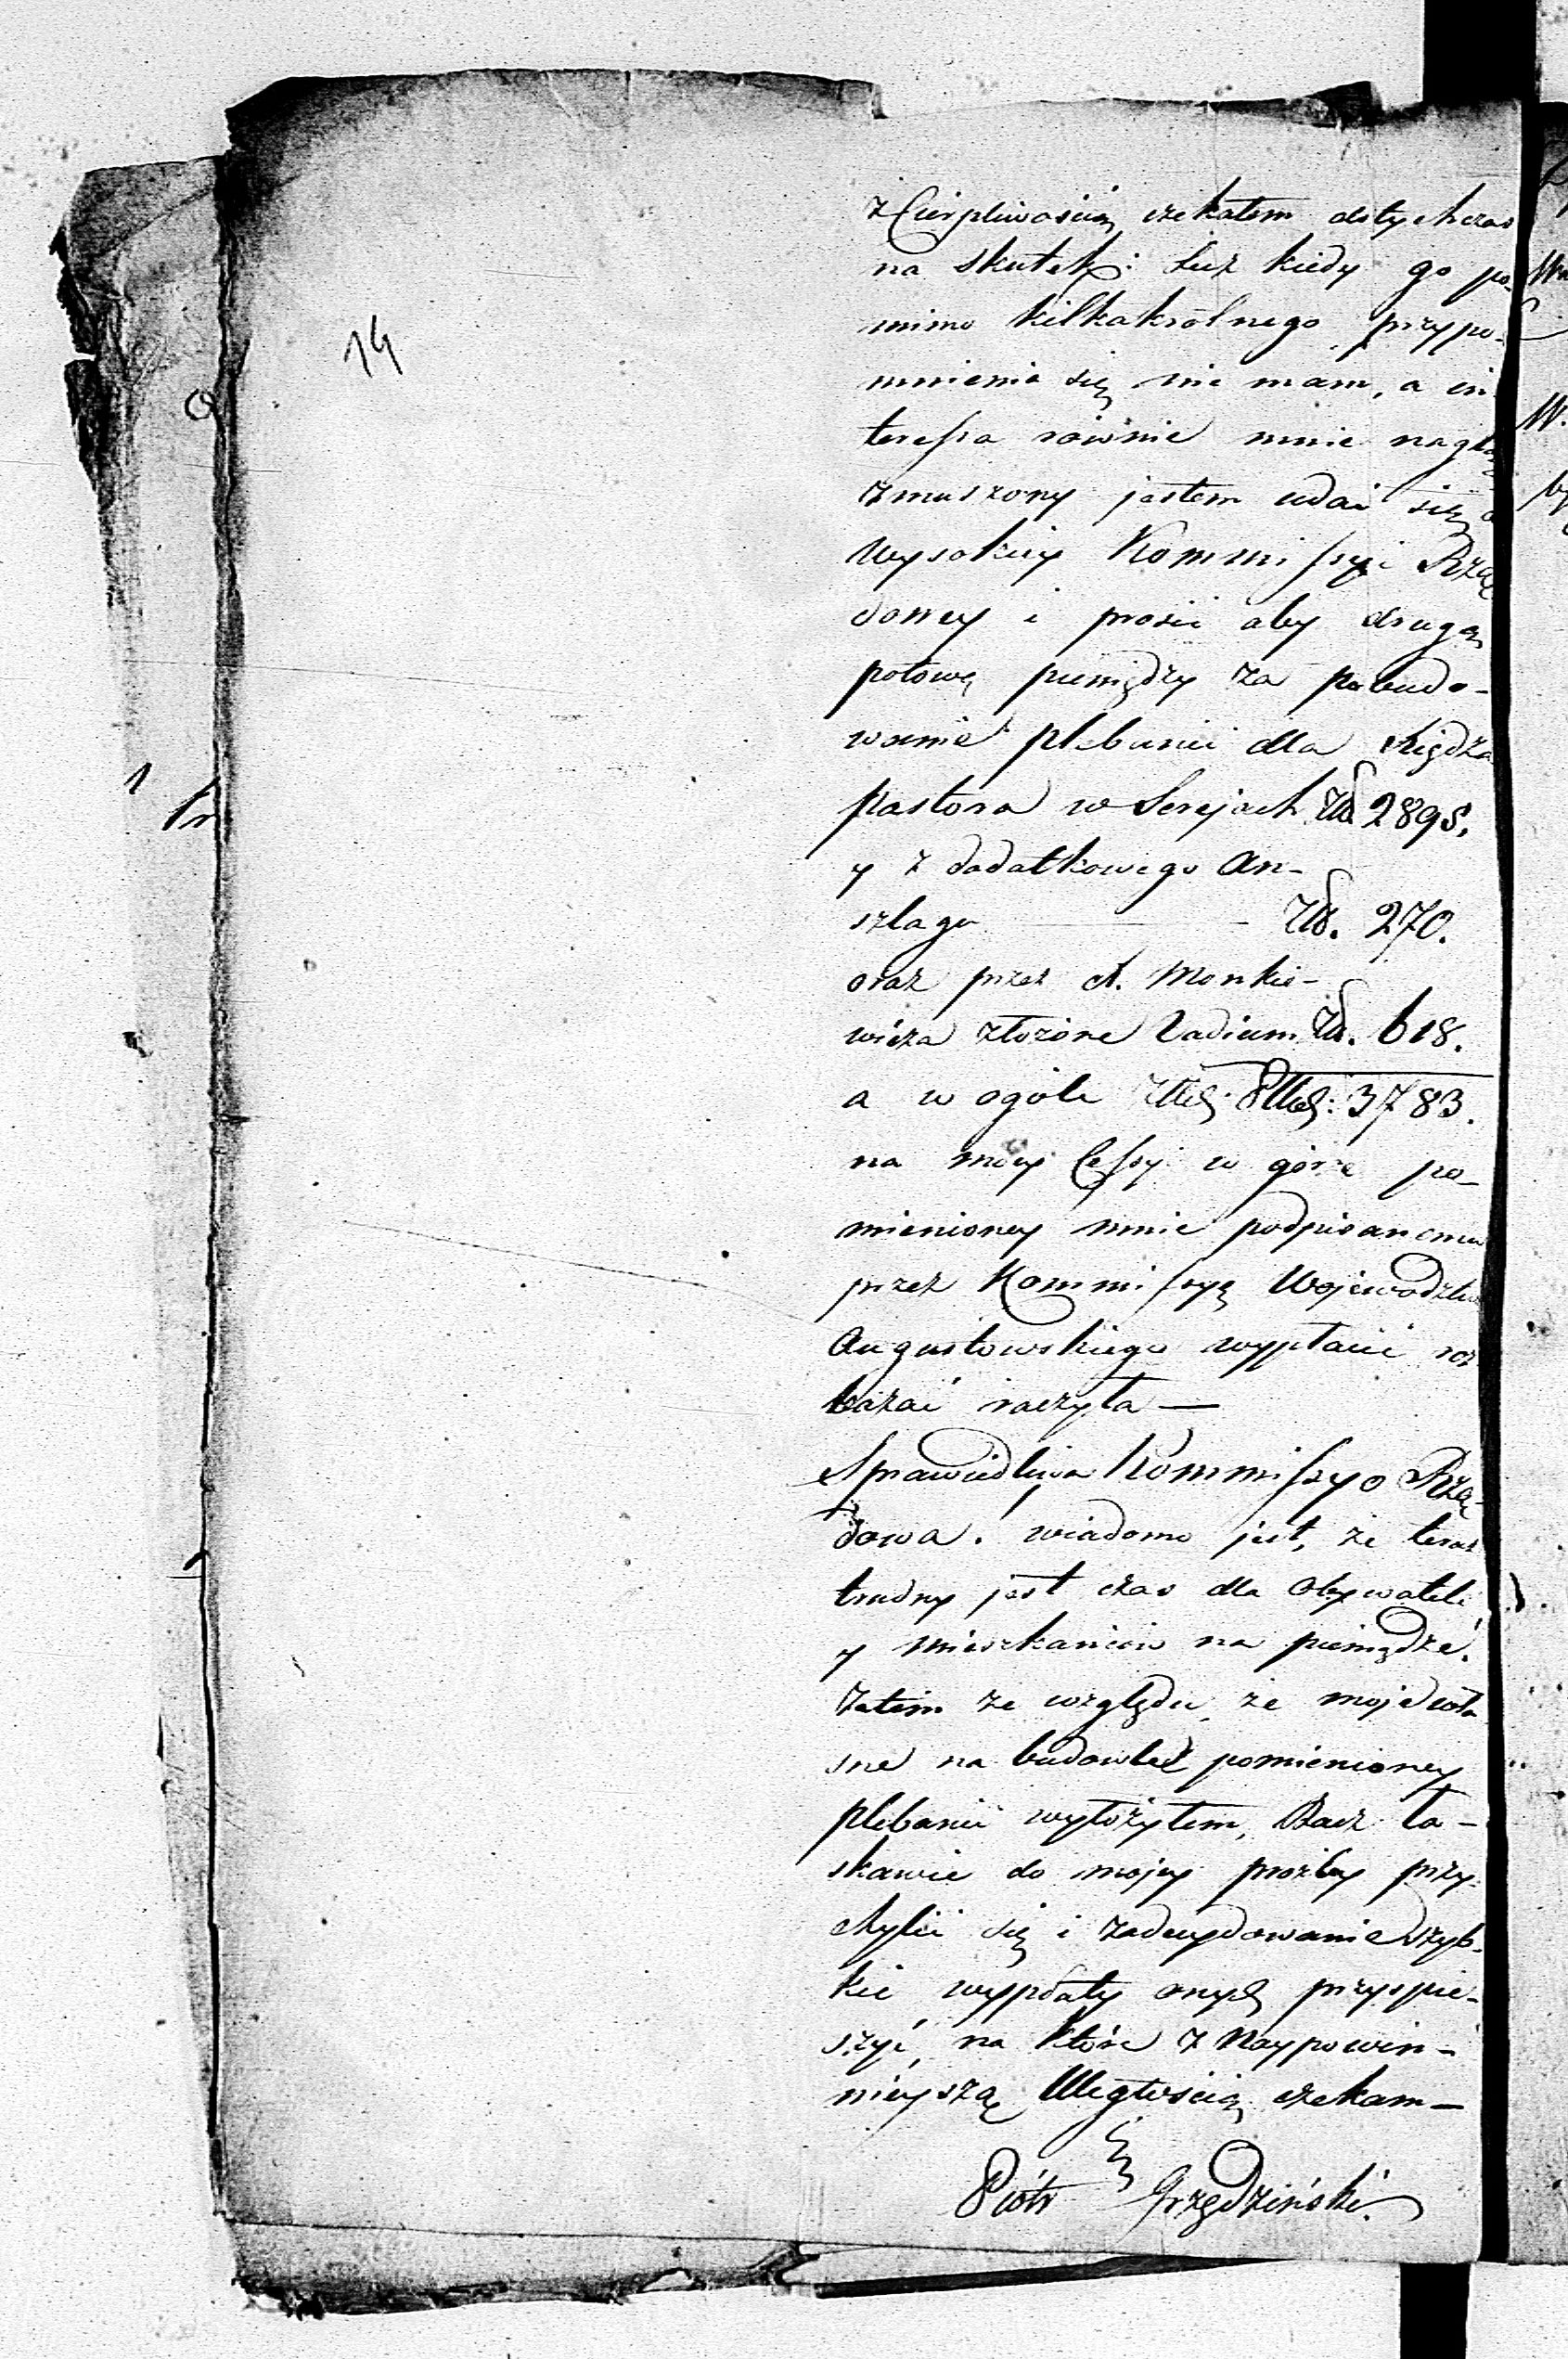 14
z Cierpliwością czekałem dotychczas
na skutek: Lecz kiedy go po-
mimo kilkakrotnego przypo-
mnienia się nie mam, a in
teressa równie mnie naglą
zmuszony jestem udać się
Wysokiey Kommissyi Rzą
dowey i prosić aby drugą
połowę pieniędzy za pobudo-
wanie plebanii dla Xiędza
pastora w Serejach Złł 2895.
y z dodatkowego An-
szlagu Złł. 270.
oraz przez A. Monkie-
wicza złożone Vadium Złł. 618.
a w ogóle 3783.
na mocy Cessyi w górze po-
mienioney mnie podpisanemu
przez Kommissyą Województwa
Augustowskiego wypłacić roz
kazać raczyła —
Sprawiedliwa Kommissyo Rzą-
dowa! wiadomo jest, że teraz
trudny jest czas dla Obywateli
y Mieszkańców na pieniądze.
Zatem ze względu, że moje wła
sne na budowlę pomienioney
plebanii wyłożyłem, Racz ła-
skawie do mojey prozby przy-
chylić się i zadecydowanie szyb-
kie wypłaty onych przyspie-
szyć, na które z Naypowin-
nieyszą Uległością czekam —
Piótr Grzędziński.